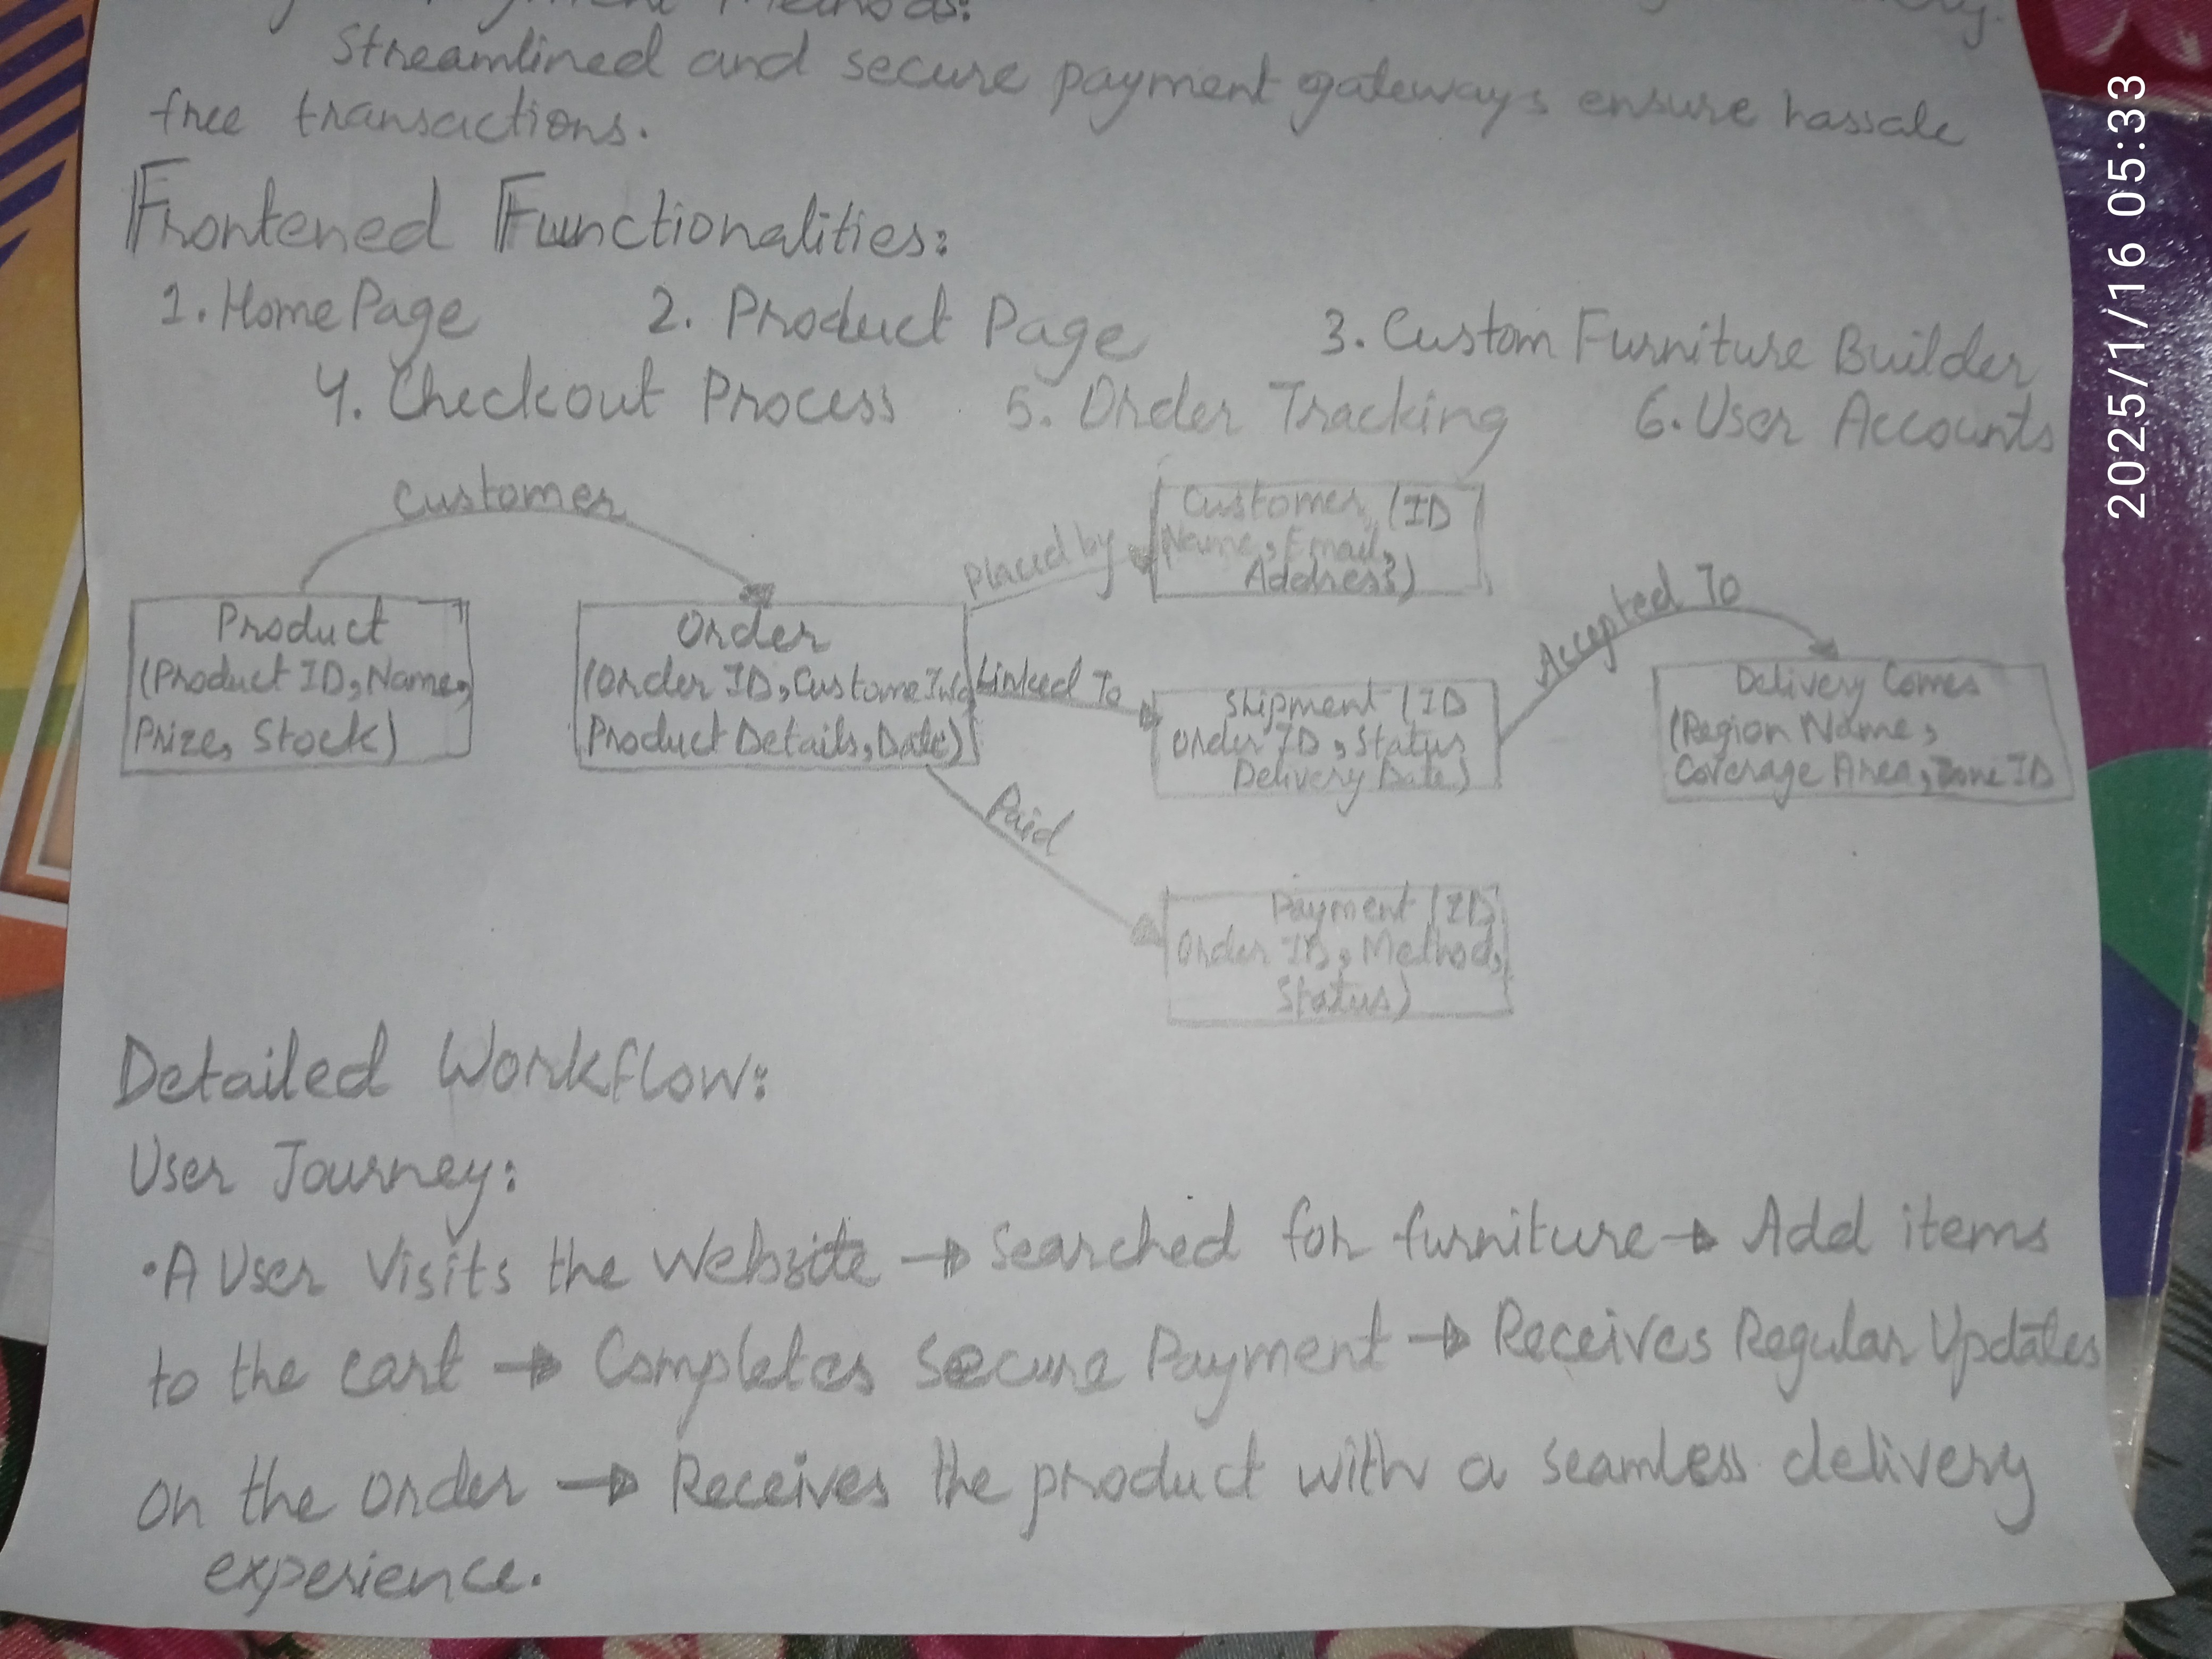 Methods:
Streamlined and secure payment gateways ensure hassale
free transactions.
Frontened Functionalities:
1. Home Page 2. Product Page 3. Custom Furniture Builder
4. Checkout Process 5. Order Tracking 6. User Accounts
Customer
Product
(Product ID, Name,
Prize, Stock)
Order
(Order ID, Custome Info
Product Details, Date)
Placed by
Customer (ID
Name, Email,
Address)
Linked To
Shipment (ID
Order ID, Status
Delivery Date)
Accepted To
Delivery Comes
(Region Name,
Coverage Area, Zone ID
Paid
Payment (ID
Order ID, Method,
Status)
Detailed Workflow:
User Journey:
• A User Visits the Website → Searched for furniture → Add items
to the cart → Completes Secure Payment → Receives Regular Updates
on the order → Receives the product with a seamless delivery
experience.
2025/1/16 05:33